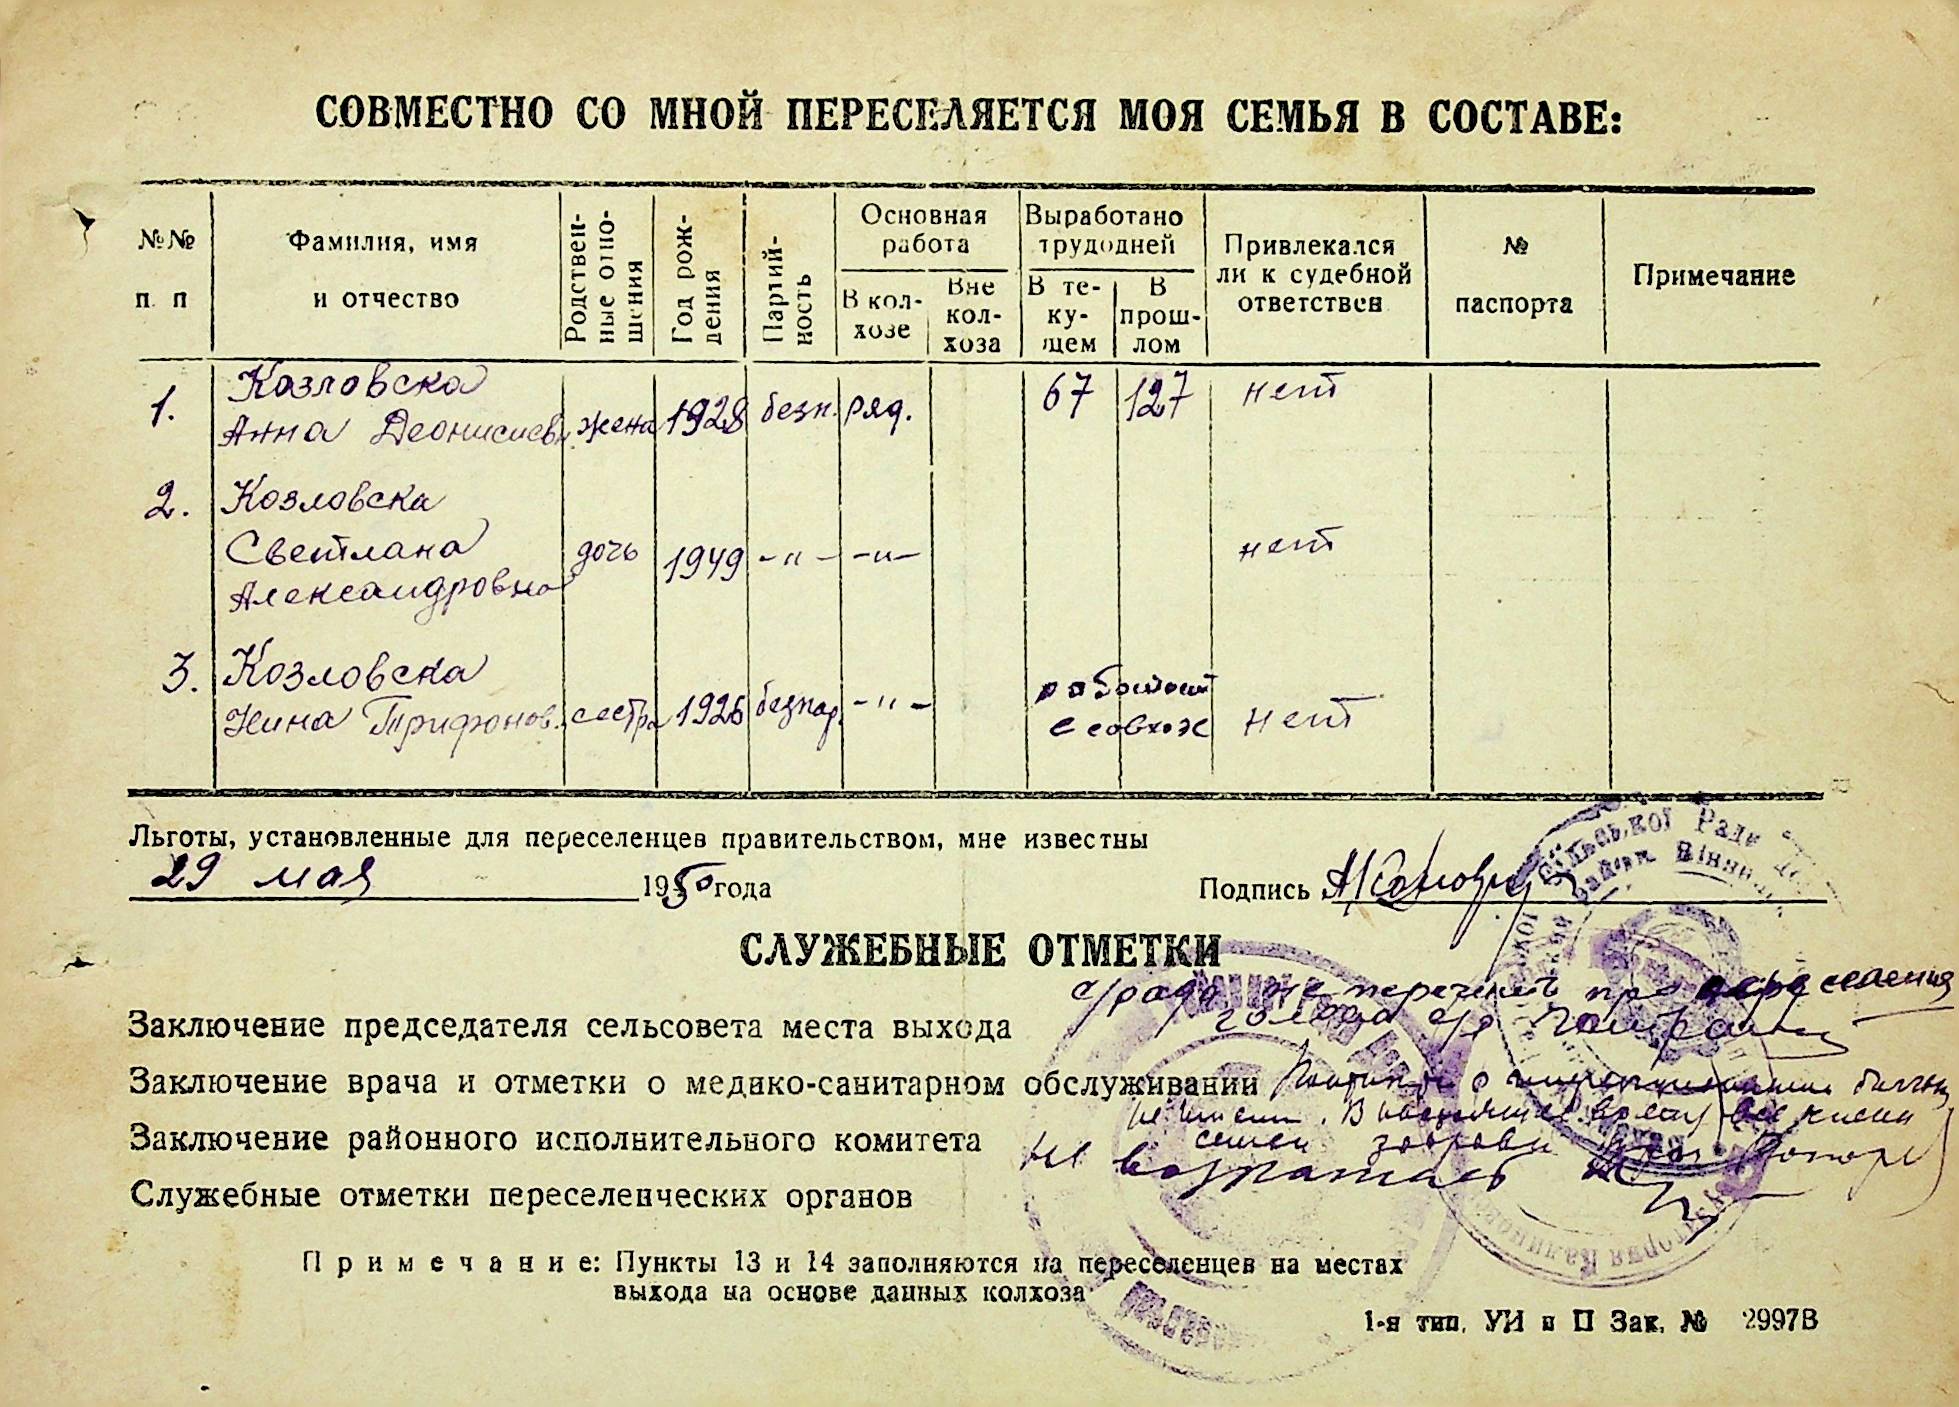 СОВМЕСТНО СО МНОЙ ПЕРЕСЕЛЯЕТСЯ МОЯ СЕМЬЯ В СОСТАВЕ:
№№ п. п
Фамилия, имя и отчество
Родственные отношения
Год рождения
Партийность
Основная работа
В колхозе
Вне колхоза
Выработано трудодней
В текущем
В прошлом
Привлекался ли к судебной ответствен
№ паспорта
Примечание
1. Козловска
Анна Деонисиевн. жена 1928 безп. ряд. 67 127 нет
2. Козловска
Светлана дочь 1949 -"- -"- нет
Александровна
3. Козловска работает
Нина Трифонов. сестра 1926 безпар. -"- в совхоз нет
Льготы, установленные для переселенцев правительством, мне известны
29 мая 1950 года
Подпись
СЛУЖЕБНЫЕ ОТМЕТКИ
с/рада не перечит переселения
Заключение председателя сельсовета места выхода голова с/р
Заключение врача и отметки о медико-санитарном обслуживании
не имеет. В настоящее время все члены
Заключение районного исполнительного комитета семьи здоровы
Не возражаем
Служебные отметки переселенческих органов
Примечание: Пункты 13 и 14 заполняются на переселенцев на местах
выхода на основе данных колхоза
1-я тип. УИ и П Зак. № 2997В